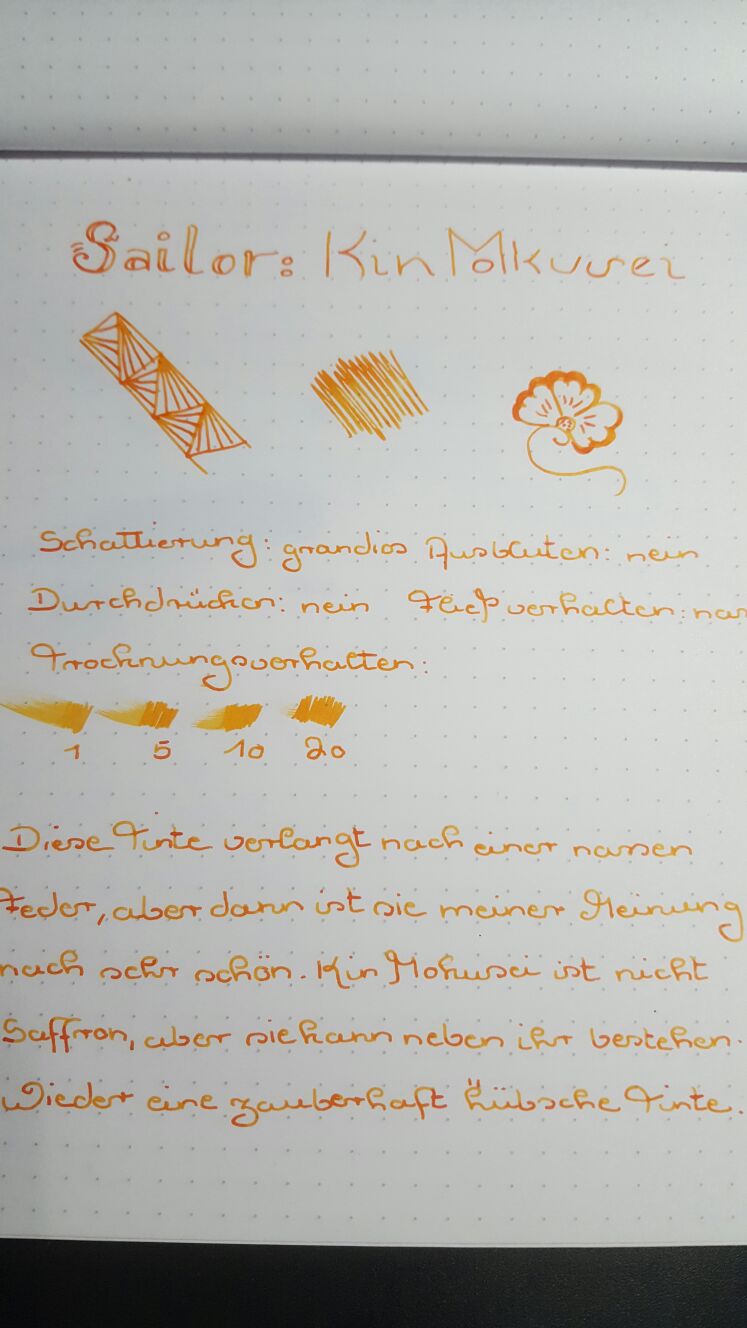 Sailor: Kin Mokuusei
Schattierung: grandios Ausbluten: nein
Durchdrücken: nein Fließverhalten:
Trocknungsverhalten:
1 5 10 20
Diese Tinte verlangt nach einer nassen
Feder, aber dann ist sie meiner Meinung
nach sehr schön. Kin Mokusei ist nicht
Saffron, aber sie kann neben ihr bestehen.
Wieder eine zauberhaft hübsche Tinte.